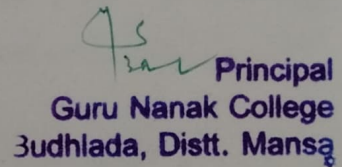 Principal
Guru Nanak College
Budhlada, Distt. Mansa